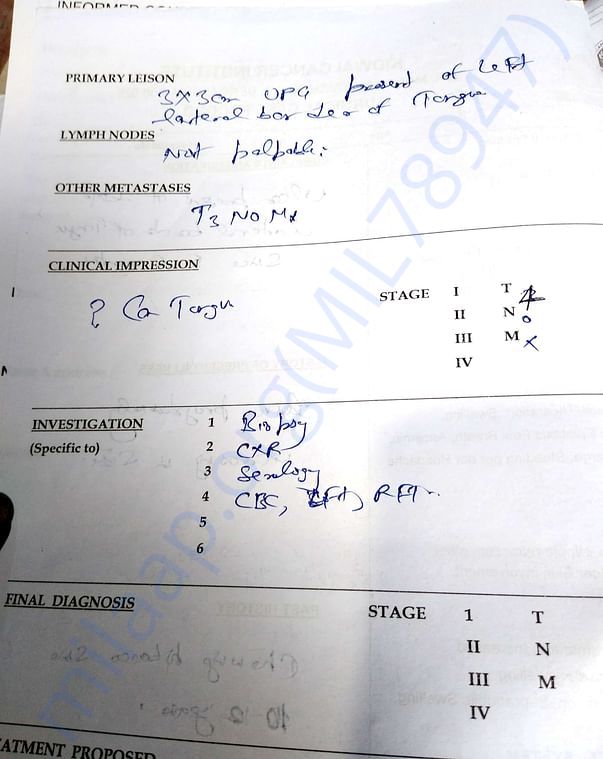 PRIMARY LEISON
3X3cm UPG present of left
lateral border of Tongue
LYMPH NODES
Not palpable.
OTHER METASTASES
T3 N0 Mx
CLINICAL IMPRESSION
? Ca Tongue
STAGE I T
II N0
III Mx
IV
INVESTIGATION
(Specific to)
1 Biopsy
2 CXR
3 Serology
4 CBC, RFT
5
6
FINAL DIAGNOSIS
STAGE 1 T
II N
III M
IV
milaap.org(MIL78947)